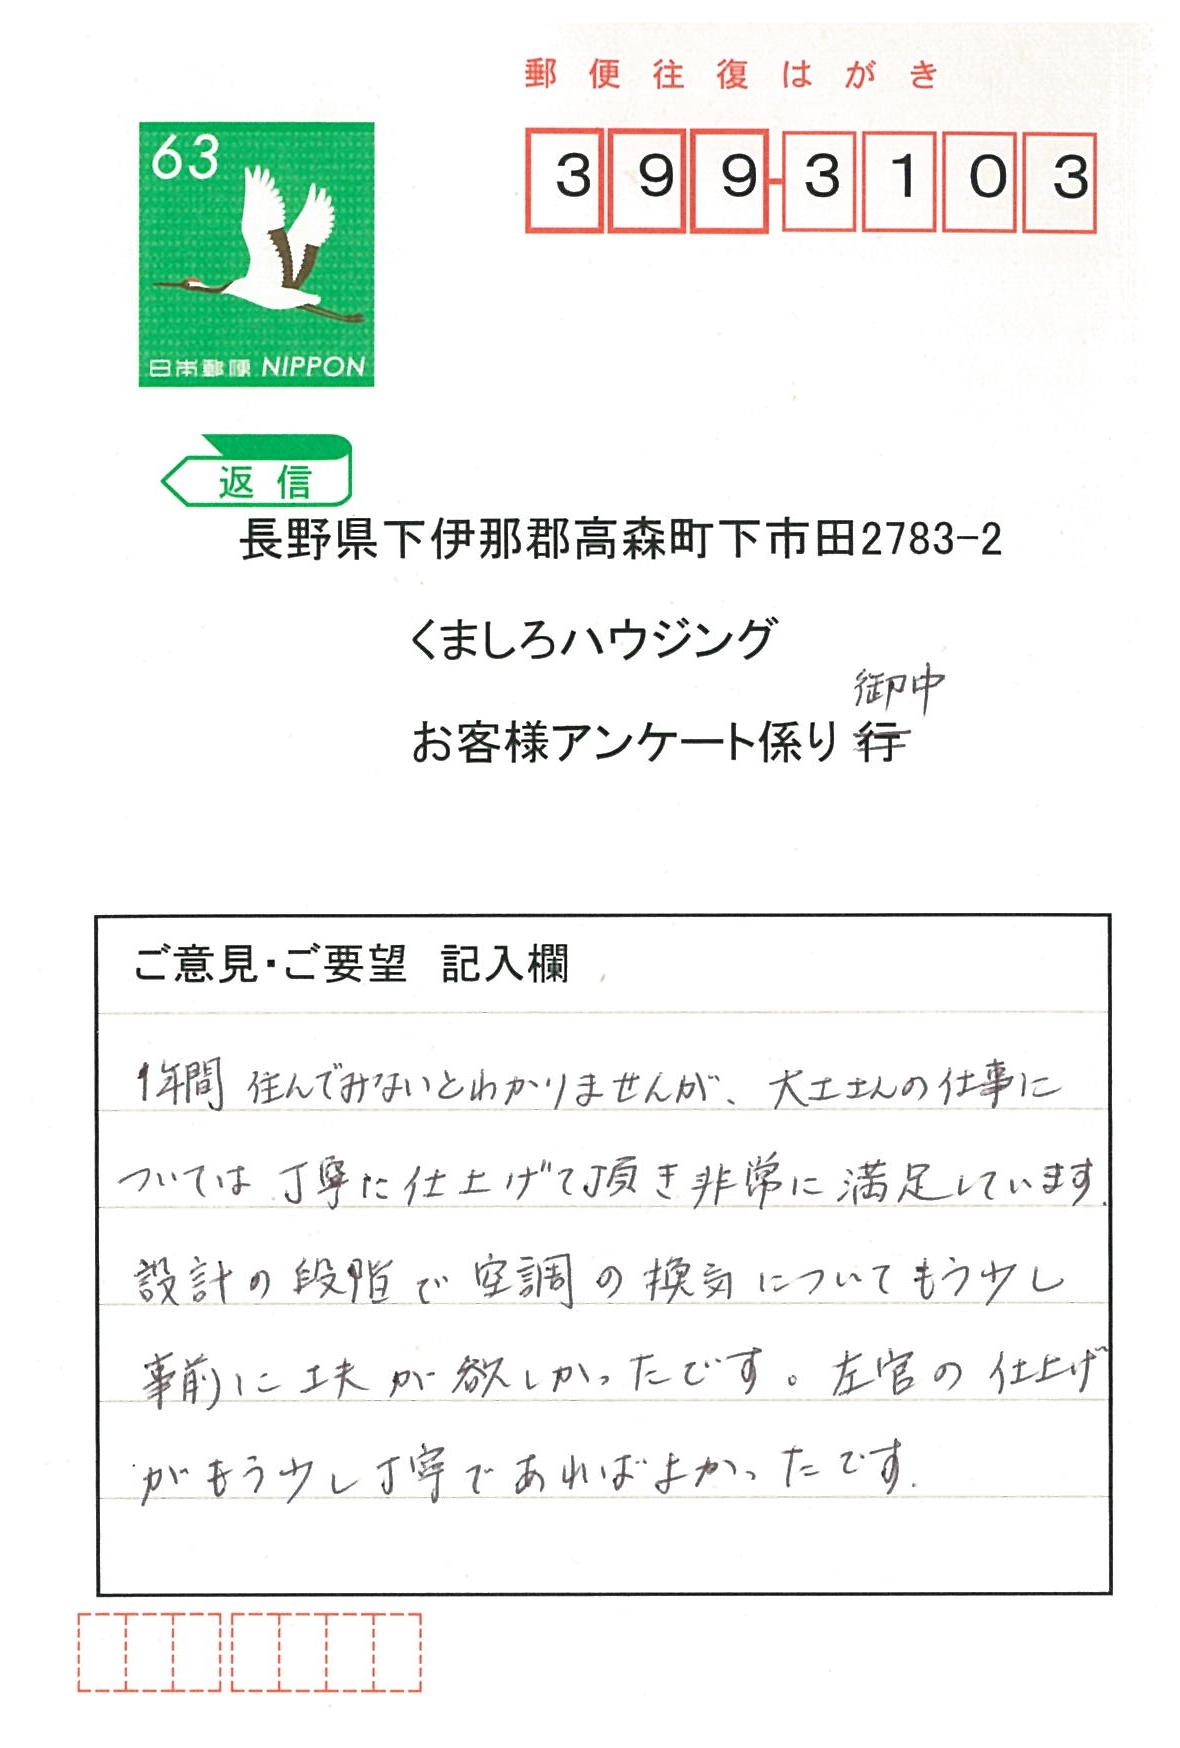 郵便往復はがき
63
399-3103
日本郵便 NIPPON
返信
長野県下伊那郡高森町下市田2783-2
くましろハウジング
御中
お客様アンケート係り 行
ご意見・ご要望 記入欄
1年間 住んでみないとわかりませんが、大工さんの仕事に
ついては 丁寧に 仕上げて頂き 非常に 満足しています.
設計の 段階で 空調の 換気についてもう少し
事前に 工夫が 欲しかったです。左官の 仕上げ
がもう少し 丁寧であればよかったです.